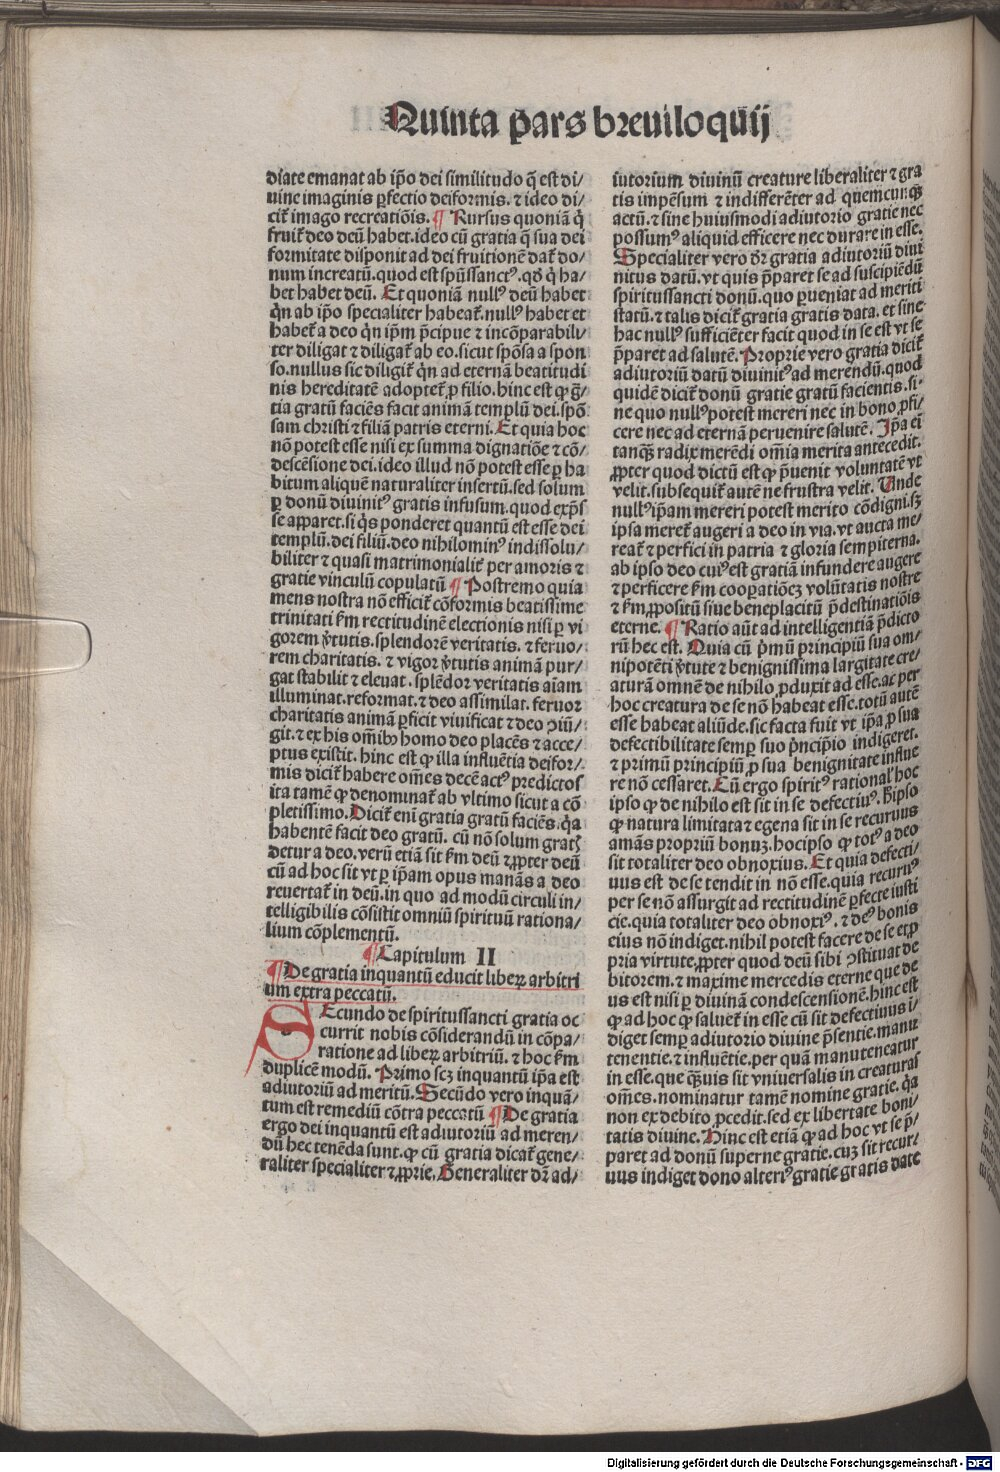 Quinta p̄ars breuiloquij
diate emanat ab ip̄o dei similitudo q̄ est di/
uine imaginis ꝑfectio deiformis. ⁊ ideo di/
cit᷑ imago recreatiōis. ¶ Rursus quoniā q̇
fruit᷑ deo deū habet. ideo cū gratia q̄ sua dei
formitate disponit ad dei fruitionē dat᷑ do/
num increatū. quod est spūssanctꝰ. qd̄ q̇ ha/
bet habet deū. Et quoniā nullꝰ deū habet
q̇n ab ip̄o specialiter habeat᷑. nullꝰ habet et
habet᷑ a deo q̇n ip̄m p̄cipue ⁊ incōparabili/
ter diligat ⁊ diligat᷑ ab eo. sicut spōsa a spon
so. nullus sic diligit᷑ q̇n ad eternā beatitudi
nis hereditatē adoptet᷑ ꝓ filio. hinc est ꝙ ḡ/
tia gratū faciēs facit animā templū dei. spō
sam christi ⁊ filiā patris eterni. Et quia hoc
nō potest esse nisi ex summa dignatiōe ⁊ cō/
descēsione dei. ideo illud nō potest esse ꝑ ha
bitum aliquē naturaliter insertū. sed solum
ꝑ donū diuinitꝰ gratis infusum. quod exp̄s
se apparet. si q̇s ponderet quantū est esse dei
templū. dei filiū. deo nihilominꝰ indissolu/
biliter ⁊ quasi matrimonialit᷑ per amoris ⁊
gratie vinculū copulatū ¶ Postremo quia
mens nostra nō efficit᷑ cōformis beatissime
trinitati ẜm rectitudinē electionis nisi ꝑ vi
gorem v̇tutis. splendorē veritatis. ⁊ feruo/
rem charitatis. ⁊ vigor v̇tutis animā pur/
gat stabilit ⁊ eleuat. splēdor veritatis aīam
illuminat. reformat. ⁊ deo assimilat. feruor
charitatis animā ꝑficit viuificat ⁊ deo ↄiū/
git. ⁊ ex his om̄ibꝰ homo deo placēs ⁊ acce/
ptus existit. hinc est ꝙ illa influētia deifor/
mis dicit᷑ habere om̄es decē actꝰ predictos
ita tamē ꝙ denominat᷑ ab vltimo sicut a cō
pletissimo. Dicit᷑ eni gratia gratū faciēs. q̇a
habentē facit deo gratū. cū nō solum gratꝭ
detur a deo. verū etiā sit ẜm deū ⁊ ꝓpter deū
cū ad hoc sit vt ꝑ ip̄am opus manās a deo
reuertat᷑ in deū. in quo ad modū circuli in/
telligibilis cōsistit omniū spirituū rationa/
lium cōplementū.
¶ Capitulum II
¶ De gratia inquantū educit liberꝝ arbitri
um extra peccatū.
SEcundo de spiritussancti gratia oc
currit nobis cōsiderandū in cōpa/
ratione ad liberꝝ arbitriū. ⁊ hoc ẜm
duplicē modū. Primo scꝫ inquantū ip̄a est
adiutoriū ad meritū. Secūdo vero inquā/
tum est remediū cōtra peccatū ¶ De gratia
ergo dei inquantū est adiutoriū ad meren/
dū hec tenēda sunt. ꝙ cū gratia dicat᷑ gene/
raliter specialiter ⁊ ꝓprie. Generaliter dr̄ ad/
iutorium diuinū creature liberaliter ⁊ gra
tis impēsum ⁊ indifferēter ad quemcunqꝫ
actū. ⁊ sine huiusmodi adiutorio gratie nec
possumꝰ aliquid efficere nec durare in esse.
Specialiter vero dr̄ gratia adiutoriū diui
nitus datū. vt quis p̄paret se ad suscipiēdū
spiritussancti donū. quo ꝑueniat ad meriti
statū. ⁊ talis dicit᷑ gratia gratis data. et sine
hac nullꝰ sufficiēter facit quod in se est vt se
p̄paret ad salutē. Proprie vero gratia dicit᷑
adiutoriū datū diuinitꝰ ad merendū. quod
quidē dicit᷑ donū gratie gratū facientis. si/
ne quo nullꝰ potest mereri nec in bono ꝓfi/
cere nec ad eternā peruenire salutē. Ip̄a ei
tanqꝫ radix merēdi om̄ia merita antecedit.
ꝓpter quod dictū est ꝙ p̄uenit voluntatē vt
velit. subsequit᷑ autē ne frustra velit. Unde
nullꝰ ip̄am mereri potest merito cōdigni. sꝫ
ipsa meret᷑ augeri a deo in via. vt aucta me/
reat᷑ ⁊ perfici in patria ⁊ gloria sempiterna.
ab ipso deo cuiꝰ est gratiā infundere augere
⁊ perficere ẜm cooꝑatiōeꝫ volūtatis nostre
⁊ ẜm ꝓpositū siue beneplacitū p̄destinatiōis
eterne. ¶ Ratio aūt ad intelligentiā p̄dicto
rū hec est. Quia cū ṗmū principiū sua om/
nipotēti v̇tute ⁊ benignissima largitate cre/
aturā omnē de nihilo ꝓduxit ad esse. ac per
hoc creatura de se nō habeat esse. totū autē
esse habeat aliūde. sic facta fuit vt ip̄a ꝓ sua
defectibilitate semꝑ suo ṗncip̄io indigeret.
⁊ primū principiū ꝓ sua benignitate influe
re nō cessaret. Cū ergo spiritꝰ rational᷑ hoc
ipso ꝙ de nihilo est sit in se defectiuꝰ. h̄ipso
ꝙ natura limitata ⁊ egena sit in se recuruus
amās propriū bonuꝫ. hocipso ꝙ totꝰ a deo
sit totaliter deo obnoxius. Et quia defecti/
uus est de se tendit in nō esse. quia recuruꝰ
per se nō assurgit ad rectitudinē ꝑfecte iusti
cie. quia totaliter deo obnoxiꝰ. ⁊ deꝰ bonis
eius nō indiget. nihil potest facere de se et ꝓ
pria virtute. ꝓpter quod deū sibi ↄstituat de
bitorem. ⁊ maxime mercedis eterne que de
us est nisi ꝑ diuinā condescensionē. hinc est
ꝙ ad hoc ꝙ saluet᷑ in esse cū sit defectiuus i/
diget semꝑ adiutorio diuine p̄sentie. manu
tenentie. ⁊ influētie. per quā manuteneatur
in esse. que qꝫuis sit vniuersalis in creaturas
om̄es. nominatur tamē nomine gratie. q̇a
non ex debito ꝓcedit. sed ex libertate boni/
tatis diuine. Hinc est etiā ꝙ ad hoc vt se p̄/
paret ad donū superne gratie. cuꝫ sit recur/
uus indiget dono alteriꝰ gratie gratis date
Digitalisierung gefördert durch die Deutsche Forschungsgemeinschaft - DFG